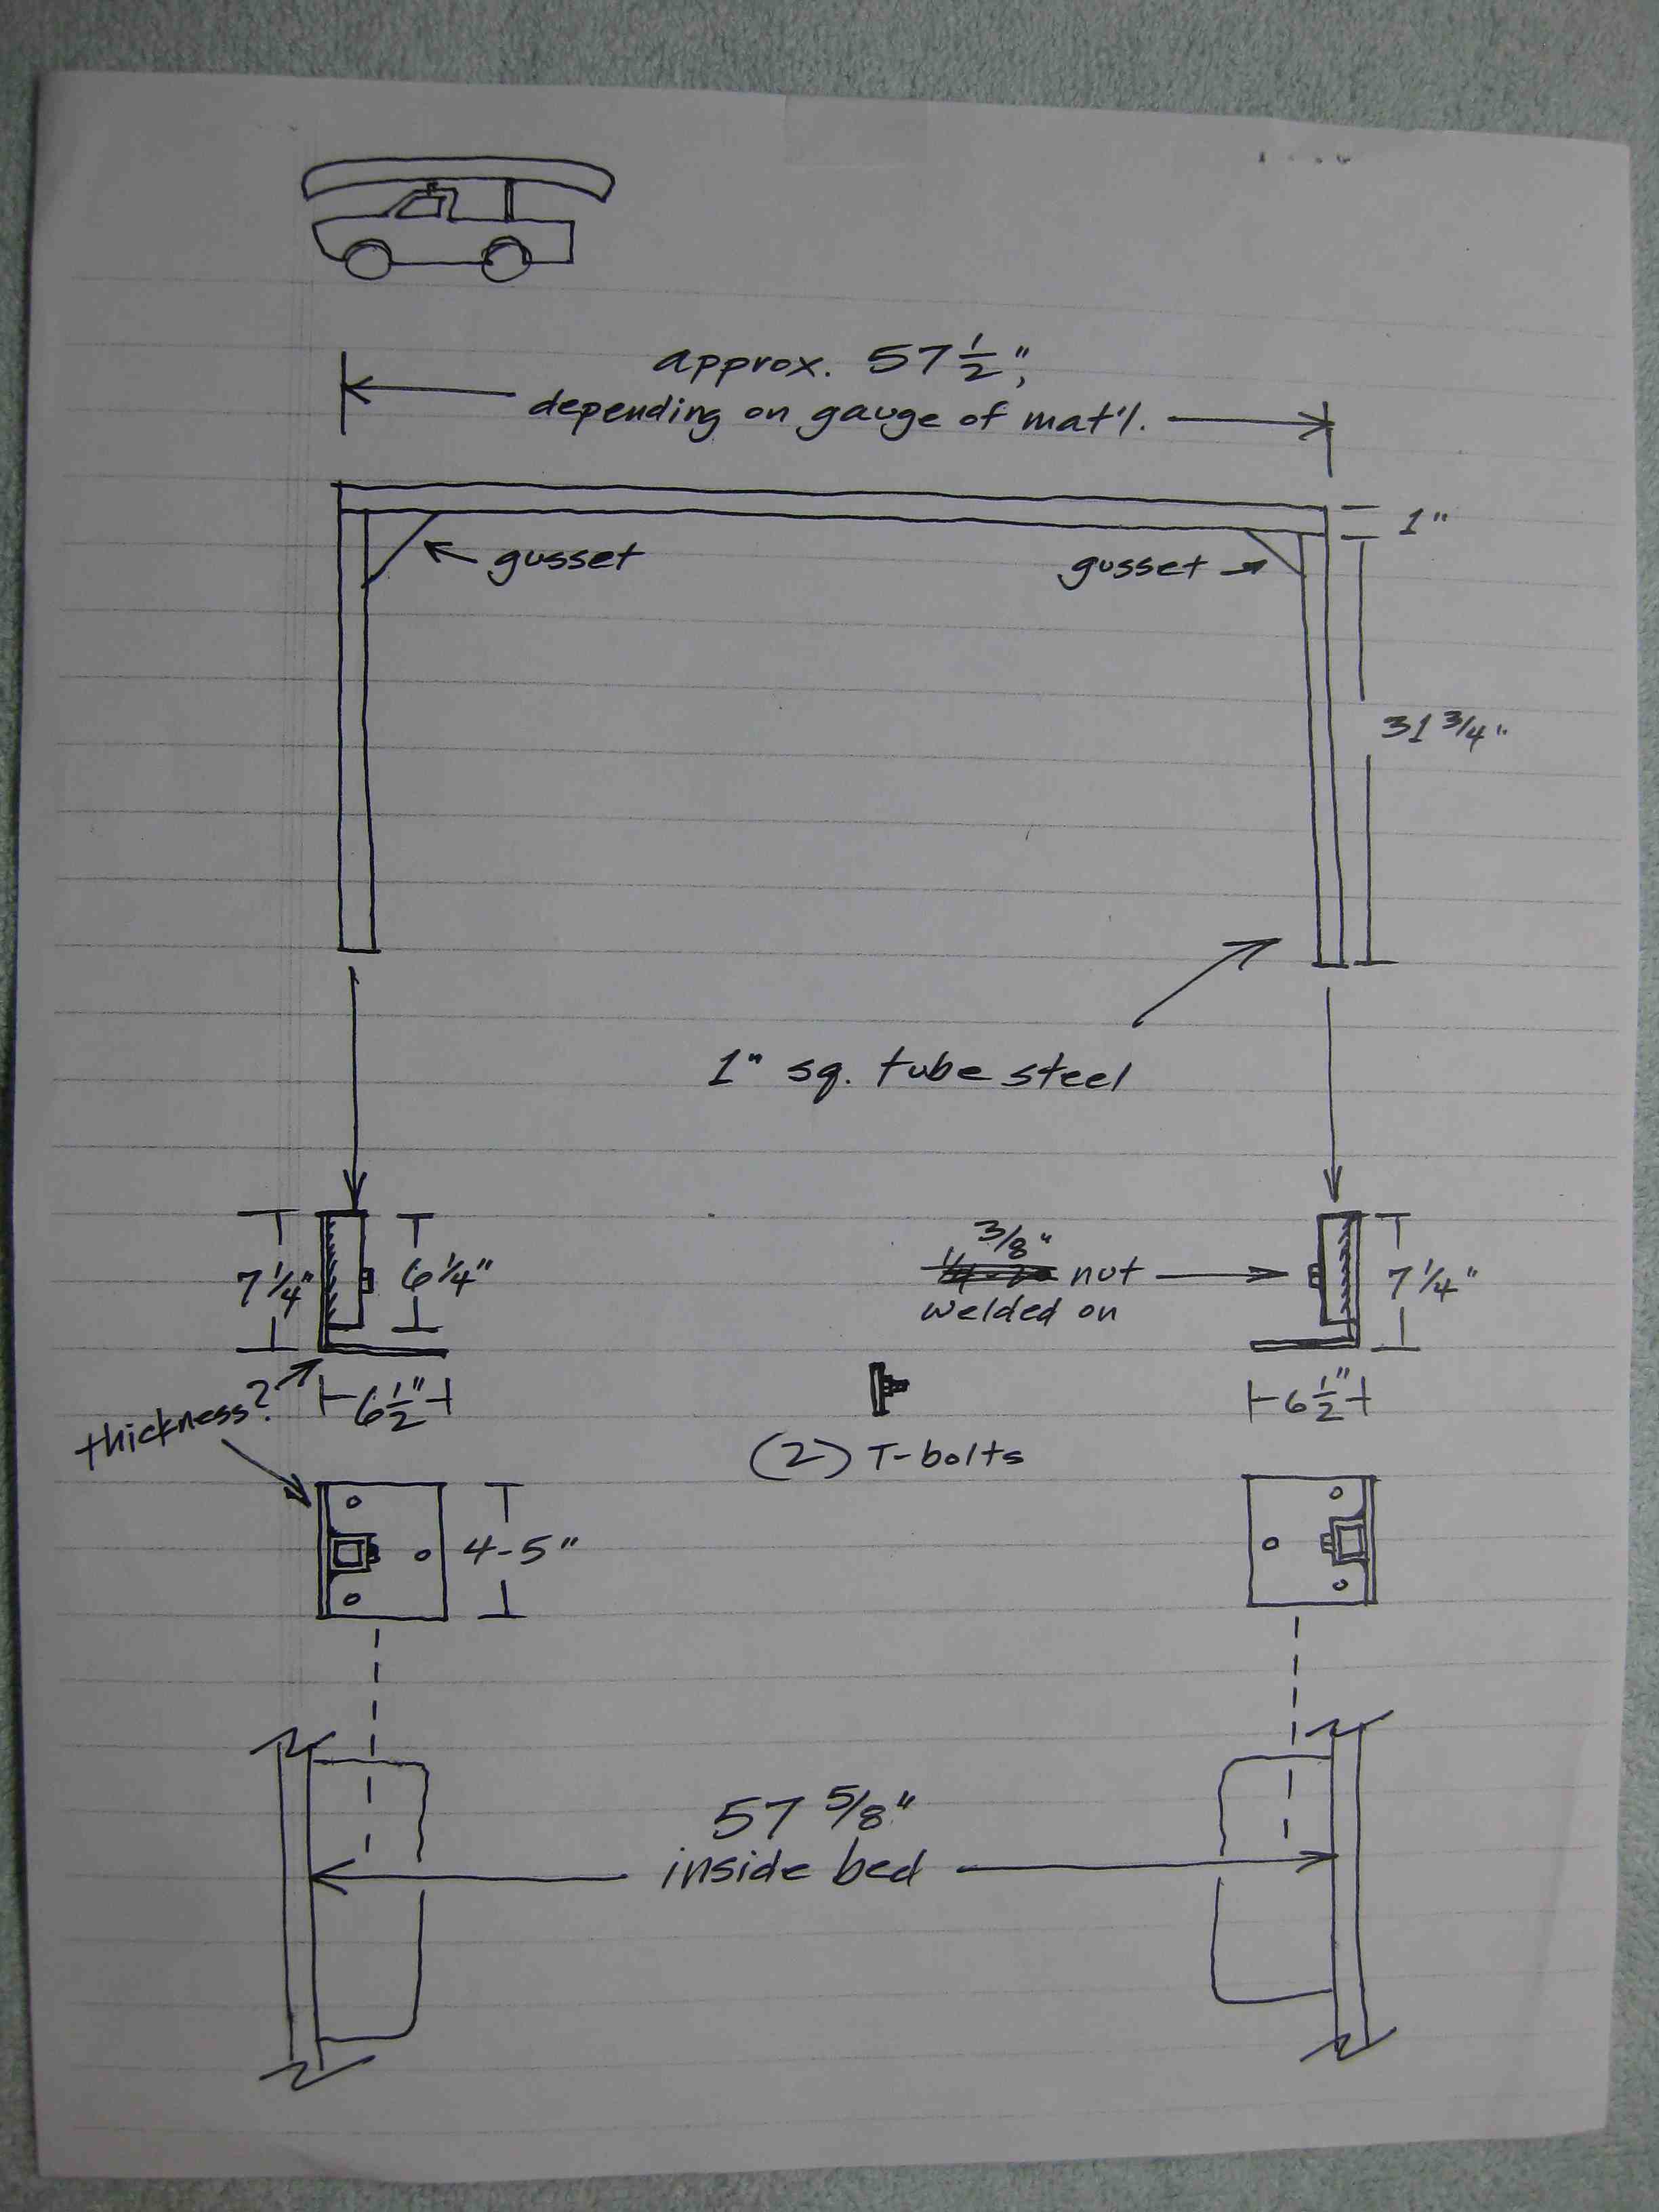 approx. 57 1/2",
depending on gauge of mat'l.
1"
gusset
gusset
31 3/4"
1" sq. tube steel
7 1/4"
6 1/4"
3/8"
nut
welded on
7 1/4"
thickness?
6 1/2"
6 1/2"
(2) T-bolts
4-5"
57 5/8"
inside bed